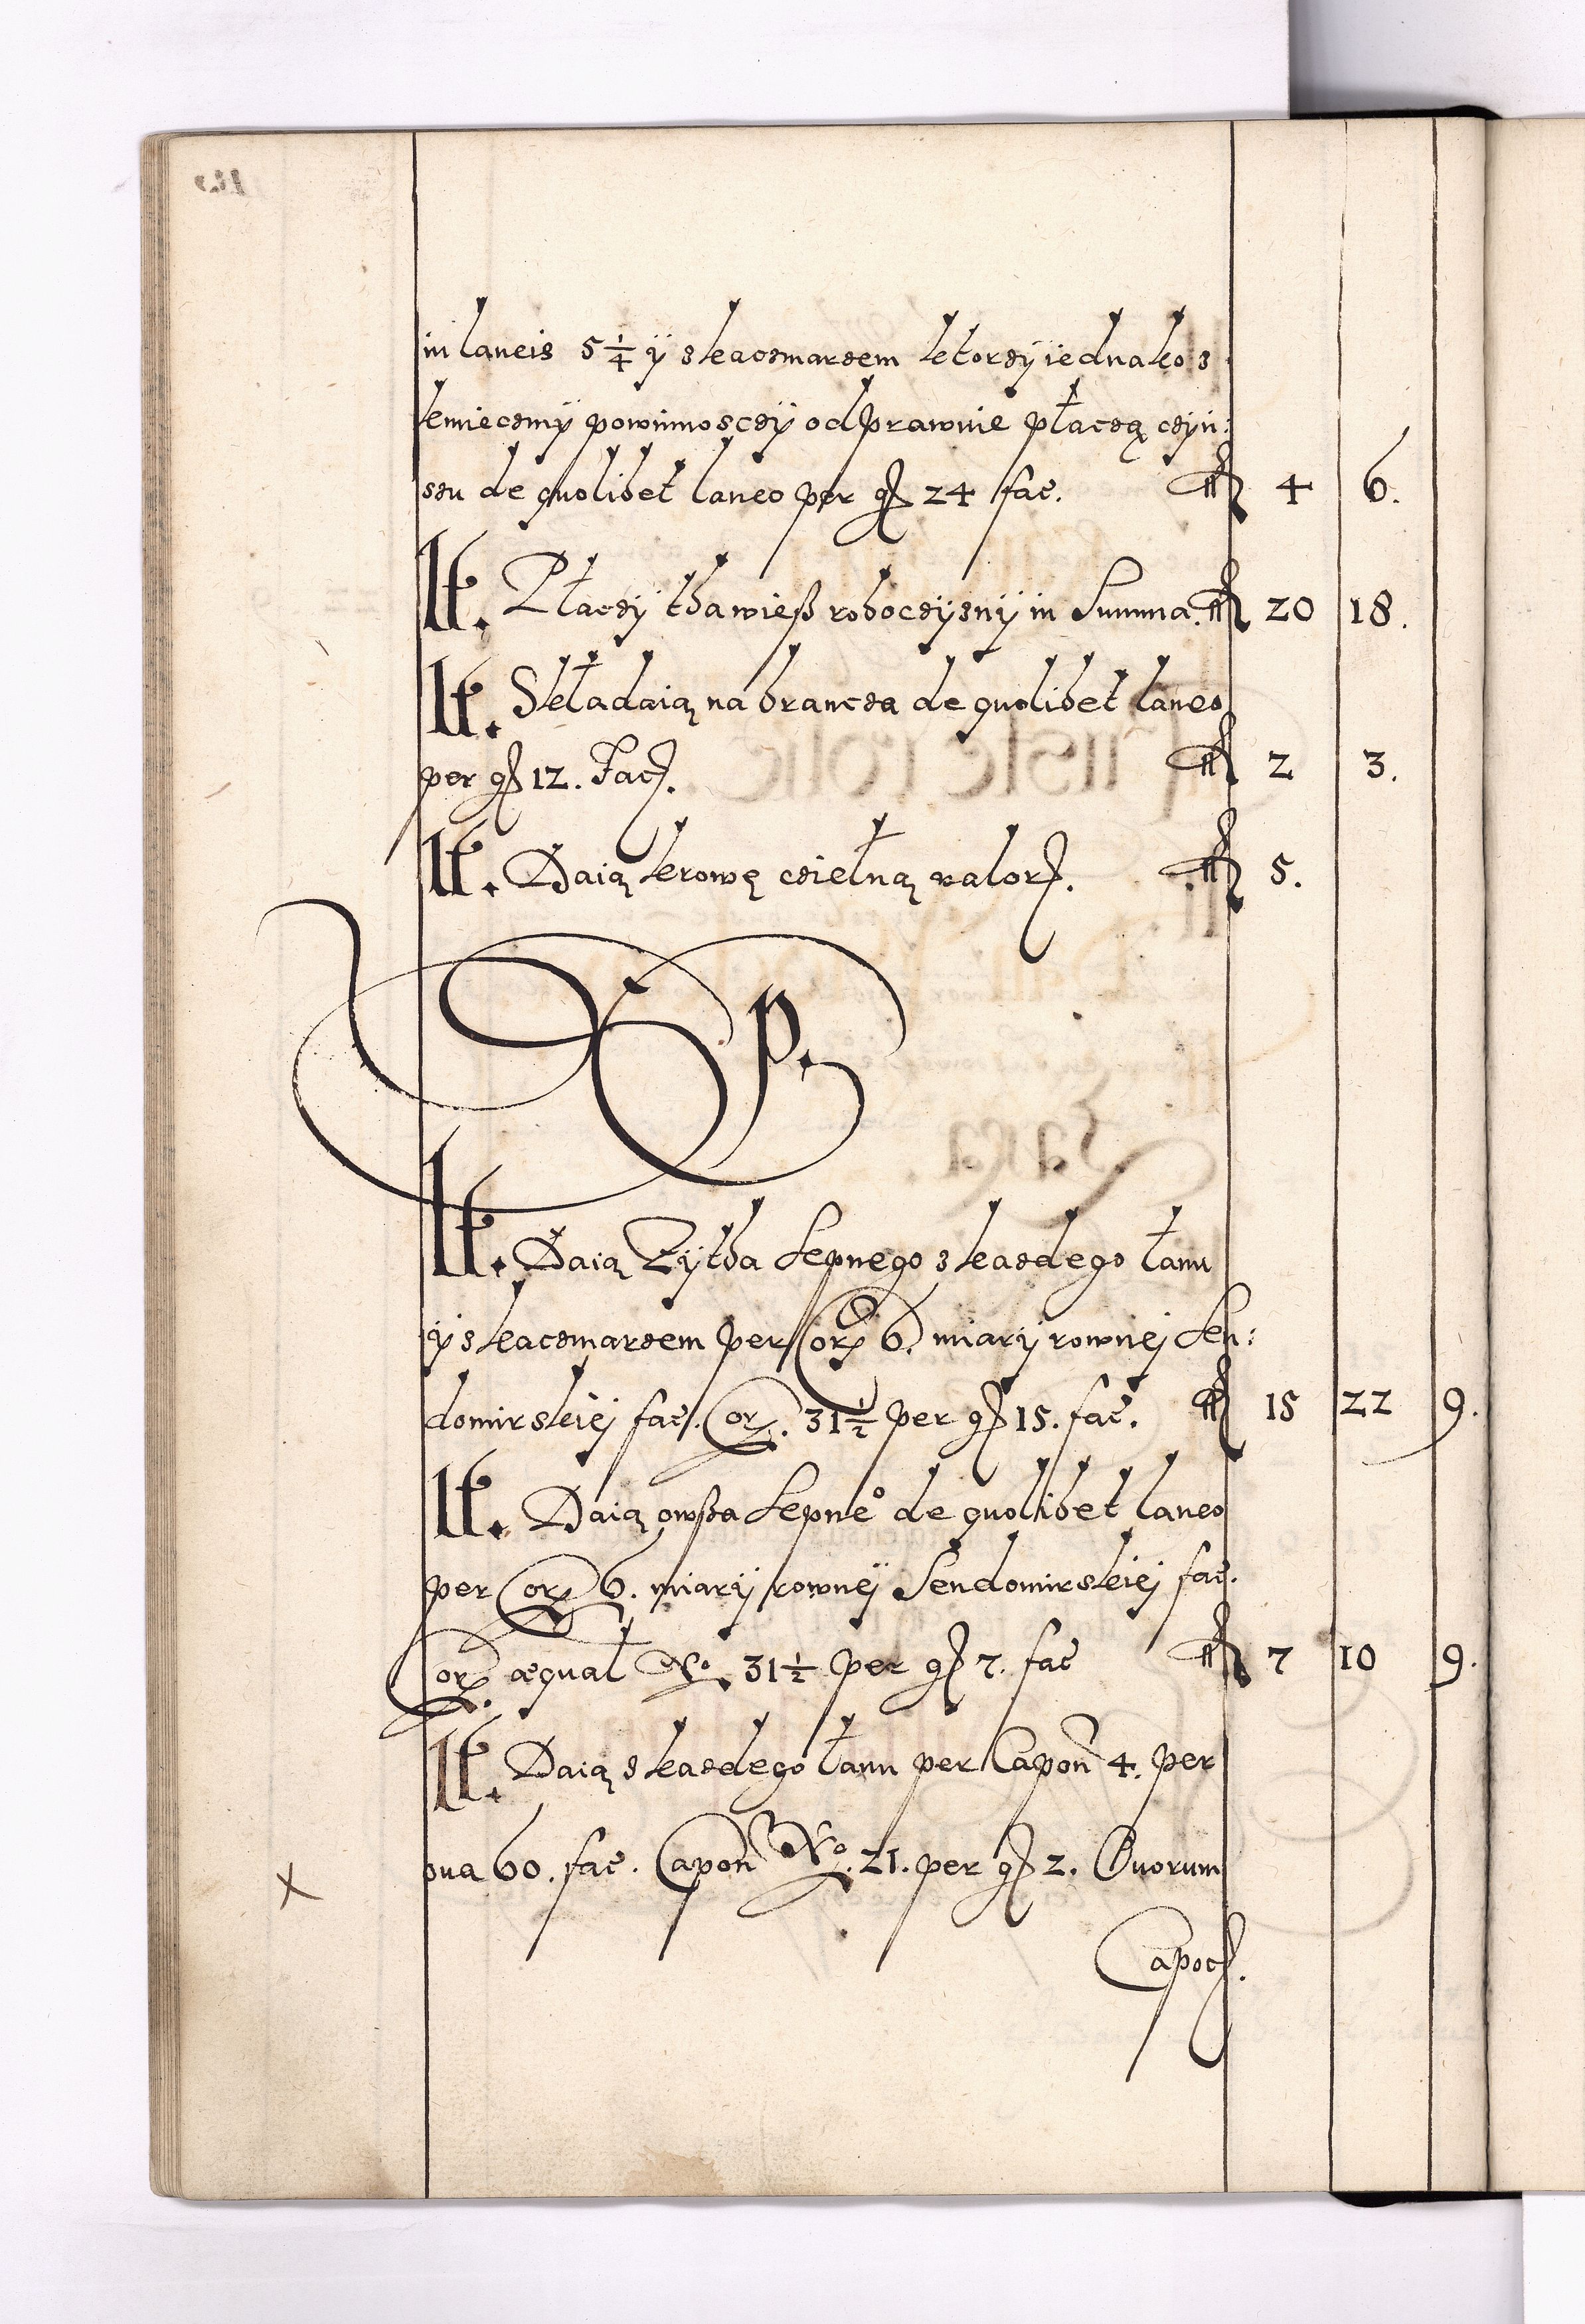 in laneis 5 1/4 ÿ z kaczmarzem ktorzÿ iednako z
kmieczmÿ powinnosczÿ odprawuie płaczą czÿn:
szu de quolibet laneo per gſ 24 fac. ff 4 6.
It. Płaczÿ tha wieß roboczÿznÿ in Summa. ff 20 18.
It. Składaią na barancza de quolibet laneo
per gſ 12. Facſ. ff 2 3.
It. Daią krowę czielną valorſ. ff 5.
P.
It. Daią Zÿtha Sepnego z kazdego łanu
ÿ z kaczmarzem per Corſ 6. miarÿ rownej Sen:
domirskiej fac. Cor. 31 1/2 per gſ 15. fac. ff 15 22 9.
It. Daią owßa Sepneº de quolibet laneo
per Corſ 6. miarÿ rownÿ Sendomirskiej fac.
Cor. æqual Nº 31 1/2 per gſ 7. fac ff 7 10 9.
It. Daią z kazdego łanu per Capoñ 4. per
ova 60. fac. Capoñ Nº. 21. per gſ 2. Ouorum
Capocſ.